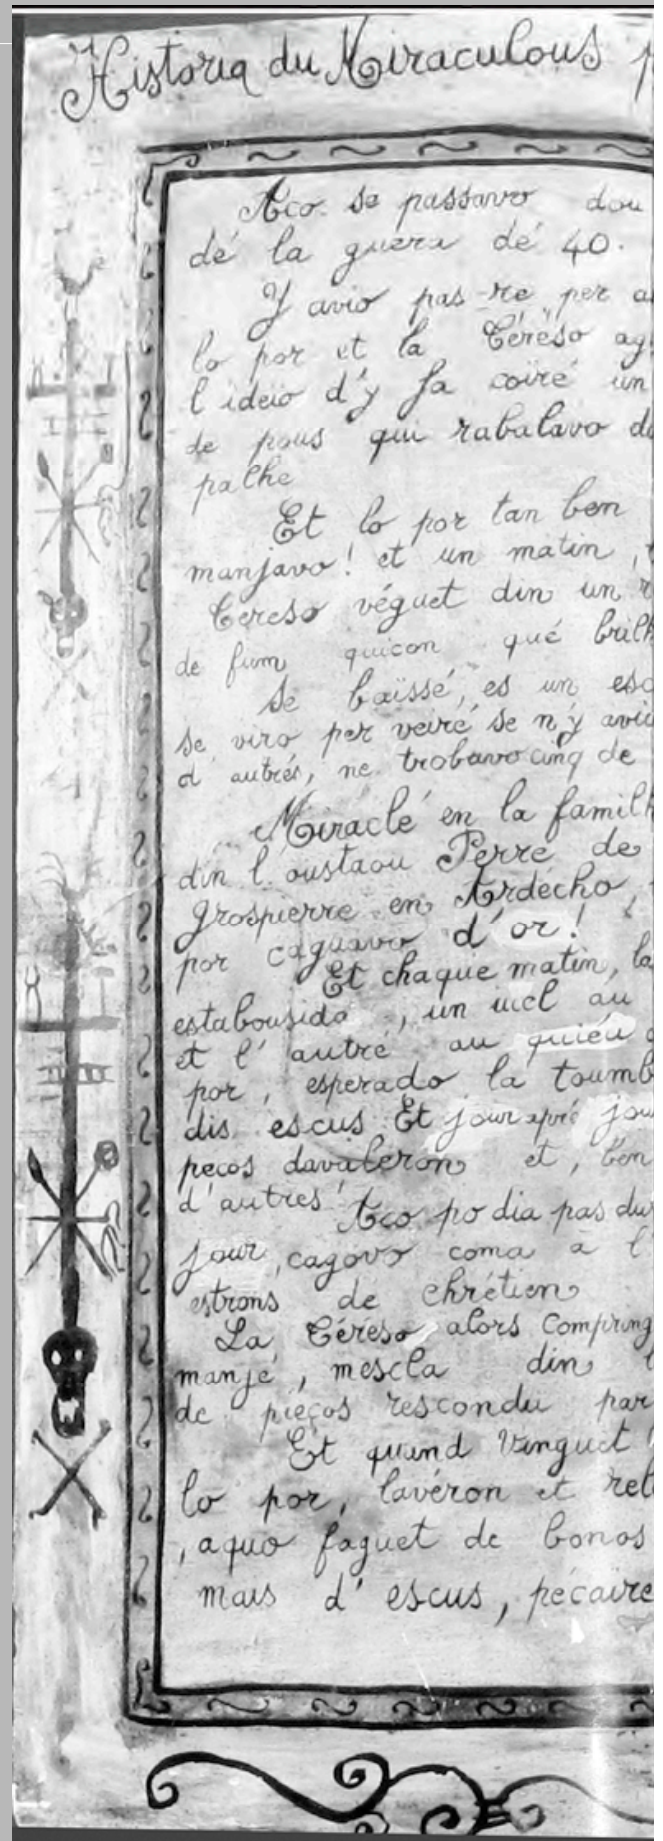 Historia du Miraculous p
Aco. se passavo dou
dé la guera dé 40.
Y avio pas-re per a
lo por et la Céréso ag
l'ideïo d'y fa coïré un
de pous qui rabalavo d
palhe
Et lo por tan ben
manjavo! et un matin,
Céreso véguet din un r
de fum quicon qué brilh
Se baïssé, es un esc
se viro per veiré se n'y aviè
d'autrés, ne trobavo cinq de
Miraclé en la familh
din l'oustaou Perre de
Grospierre en Ardécho,
por caguavo d'or!
Et chaque matin, la
estabousido, un uiel au
et l'autré au quiéu
por, esperado la toumb
dis escus Et jour apré jou
peços davaleron et, ben
d'autres! Aco podia pas du
jour, cagovo coma à l'
estrons de chrétien
La Céréso alors compring
manjé, mescla din l
de pieços rescondu par
Et quand vinguet
lo por, lavéron et rel
, aquo faguet de bonos
mais d'escus, pécaïre